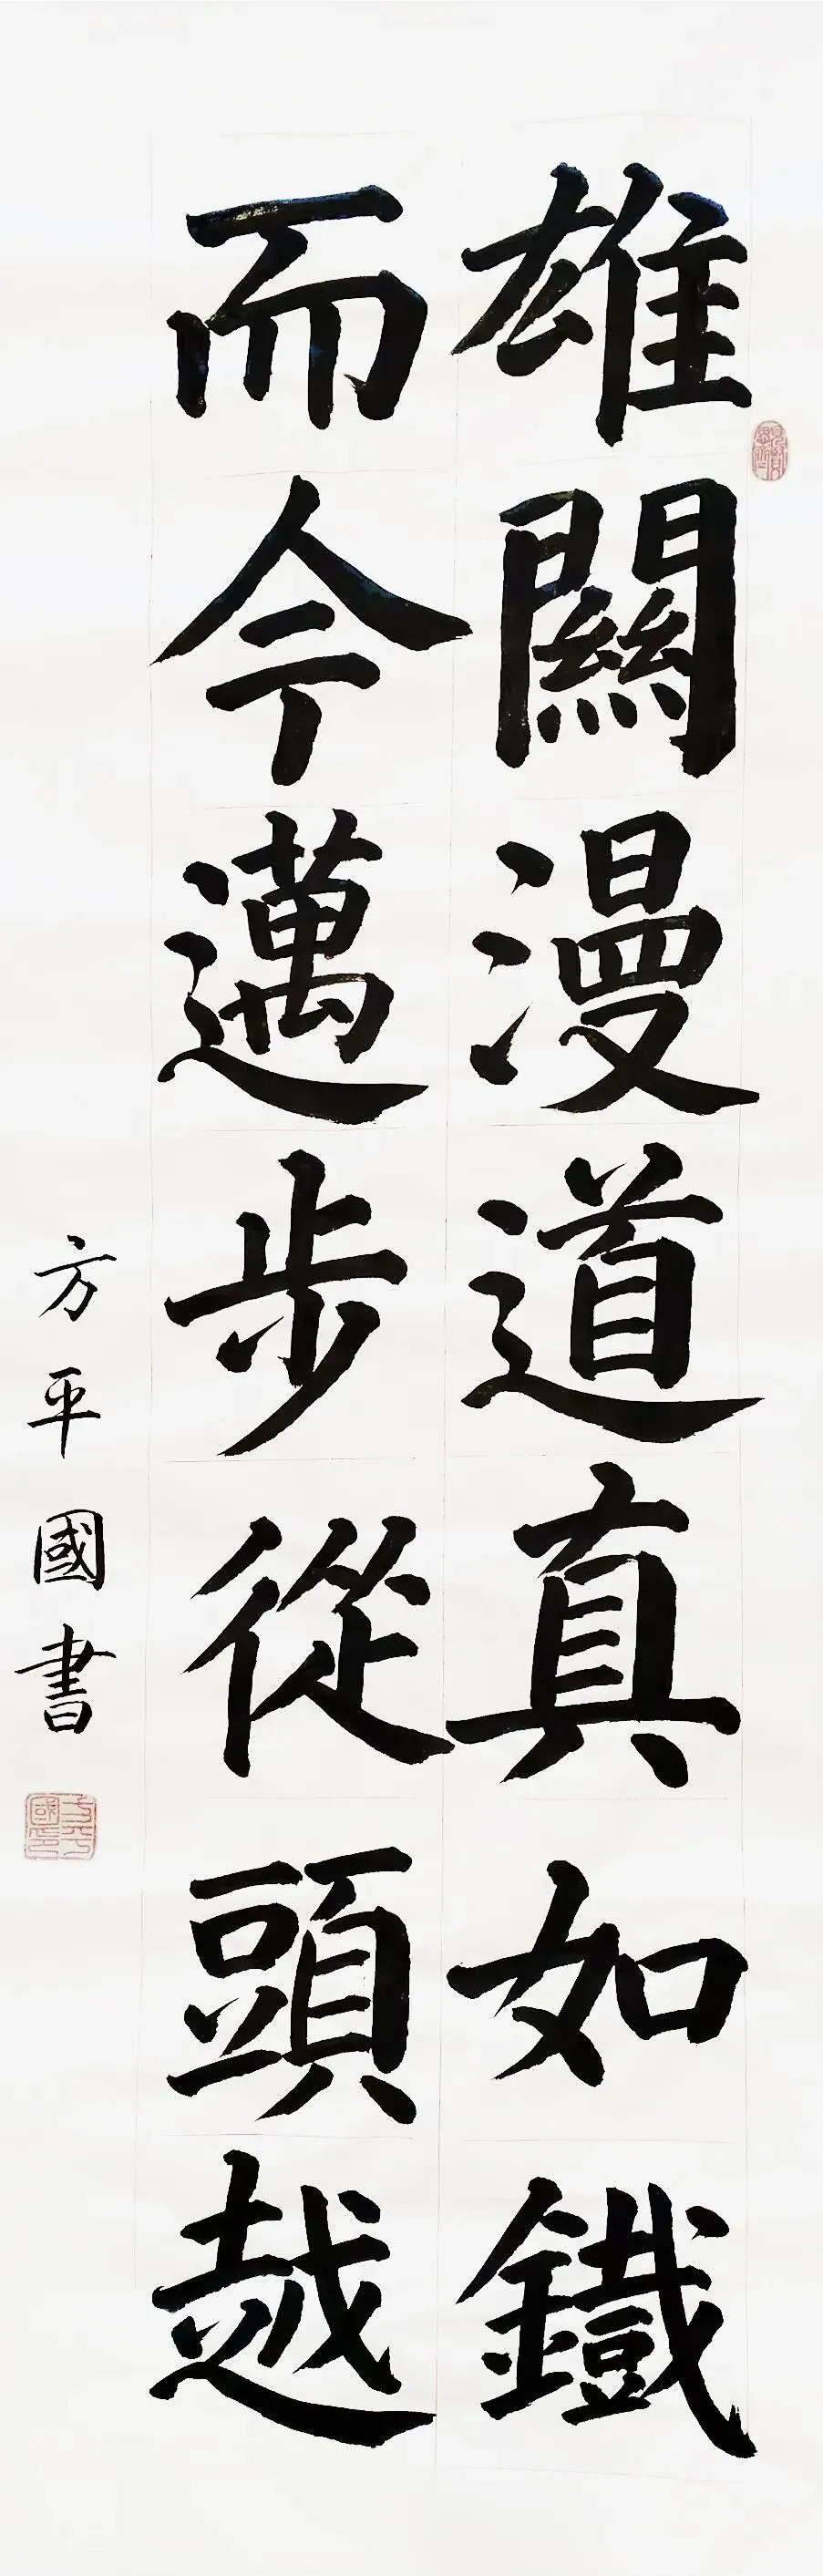 雄關漫道真如鐵
而今邁步從頭越
方平國書